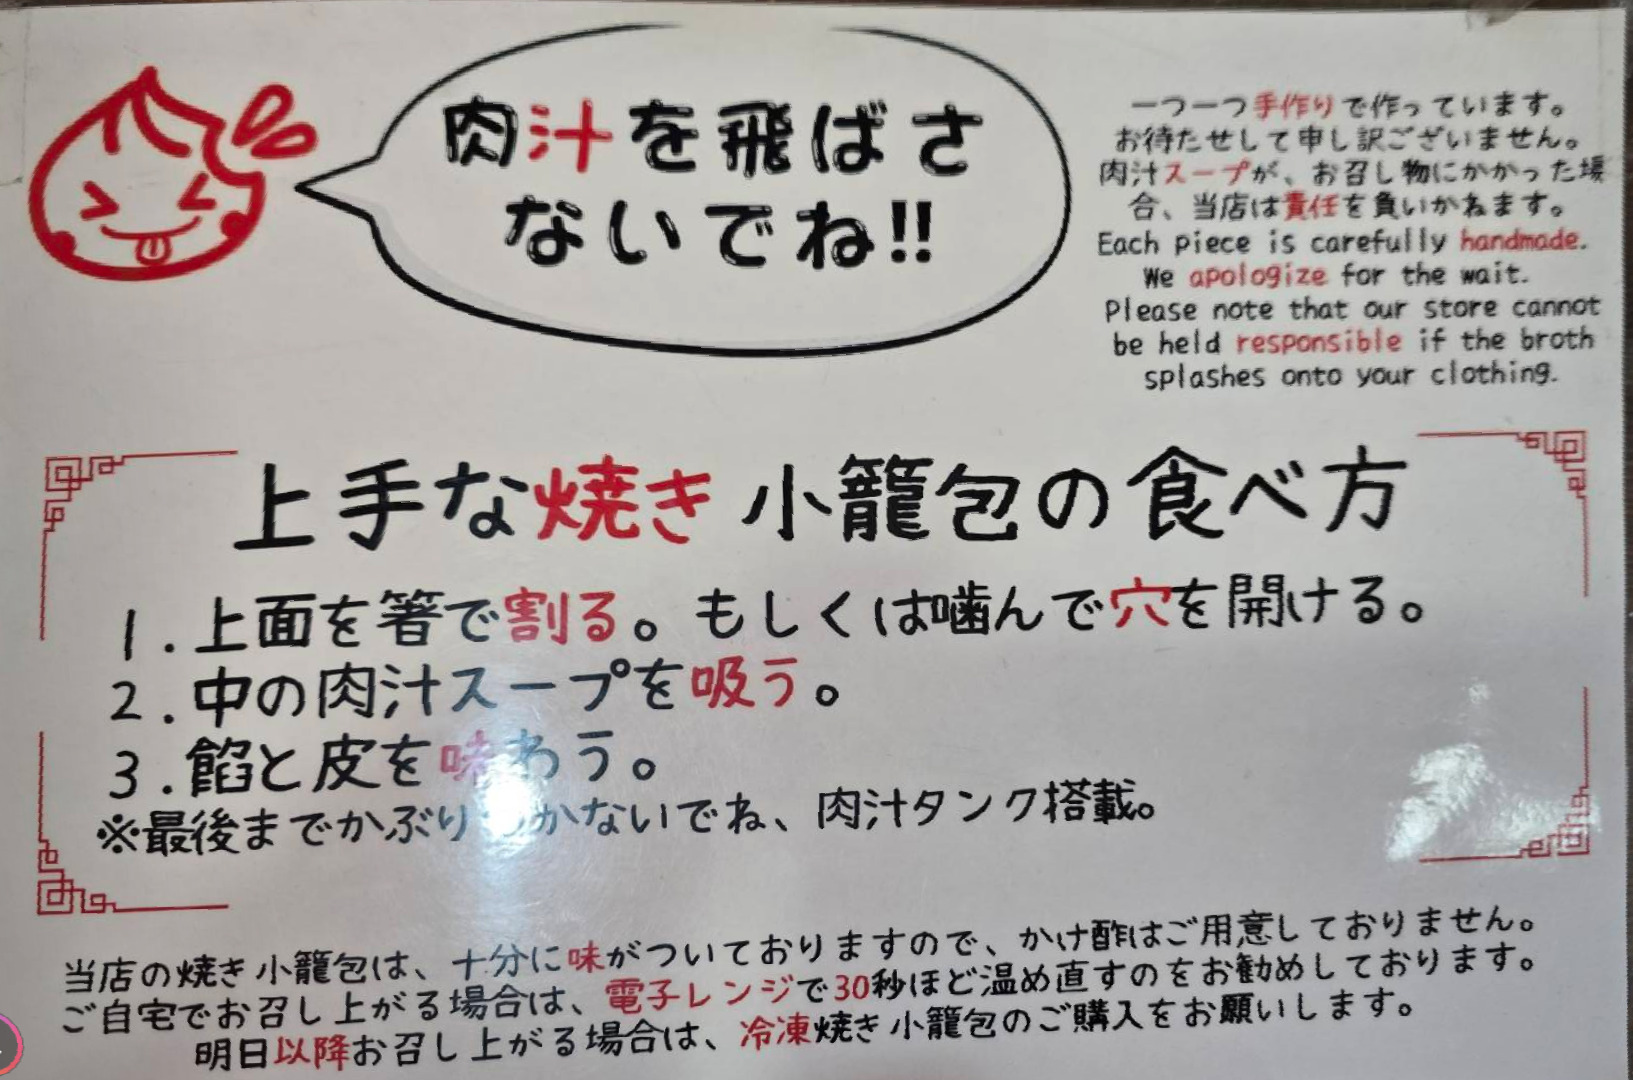 肉汁を飛ばさ
ないでね!!
一つ一つ手作りで作っています。
お待たせして申し訳ございません。
肉汁スープが、お召し物にかかった場
合、当店は責任を負いかねます。
Each piece is carefully handmade.
We apologize for the wait.
Please note that our store cannot
be held responsible if the broth
splashes onto your clothing.
上手な焼き小籠包の食べ方
1.上面を箸で割る。もしくは噛んで穴を開ける。
2.中の肉汁スープを吸う。
3.餡と皮を味わう。
※最後までかぶりつかないでね、肉汁タンク搭載。
当店の焼き小籠包は、十分に味がついておりますので、かけ酢はご用意しておりません。
ご自宅でお召し上がる場合は、電子レンジで30秒ほど温め直すのをお勧めしております。
明日以降お召し上がる場合は、冷凍焼き小籠包のご購入をお願いします。